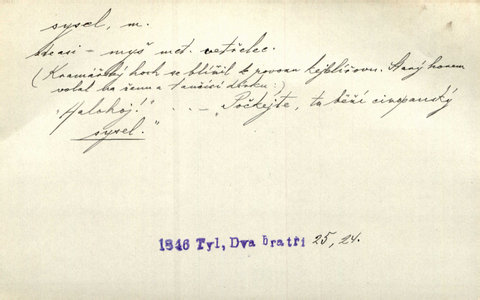 sysel, m.
asi - myš met. vetřelec.
(Kramářský hoch se blížil k panu hejblišovu. Starý honem
volal na ženu a tančící dívku:)
"Halohoj!" . . - "Počkejte, tu běží cizpanský
sysel."
1846 Tyl, Dva bratři 25, 24.